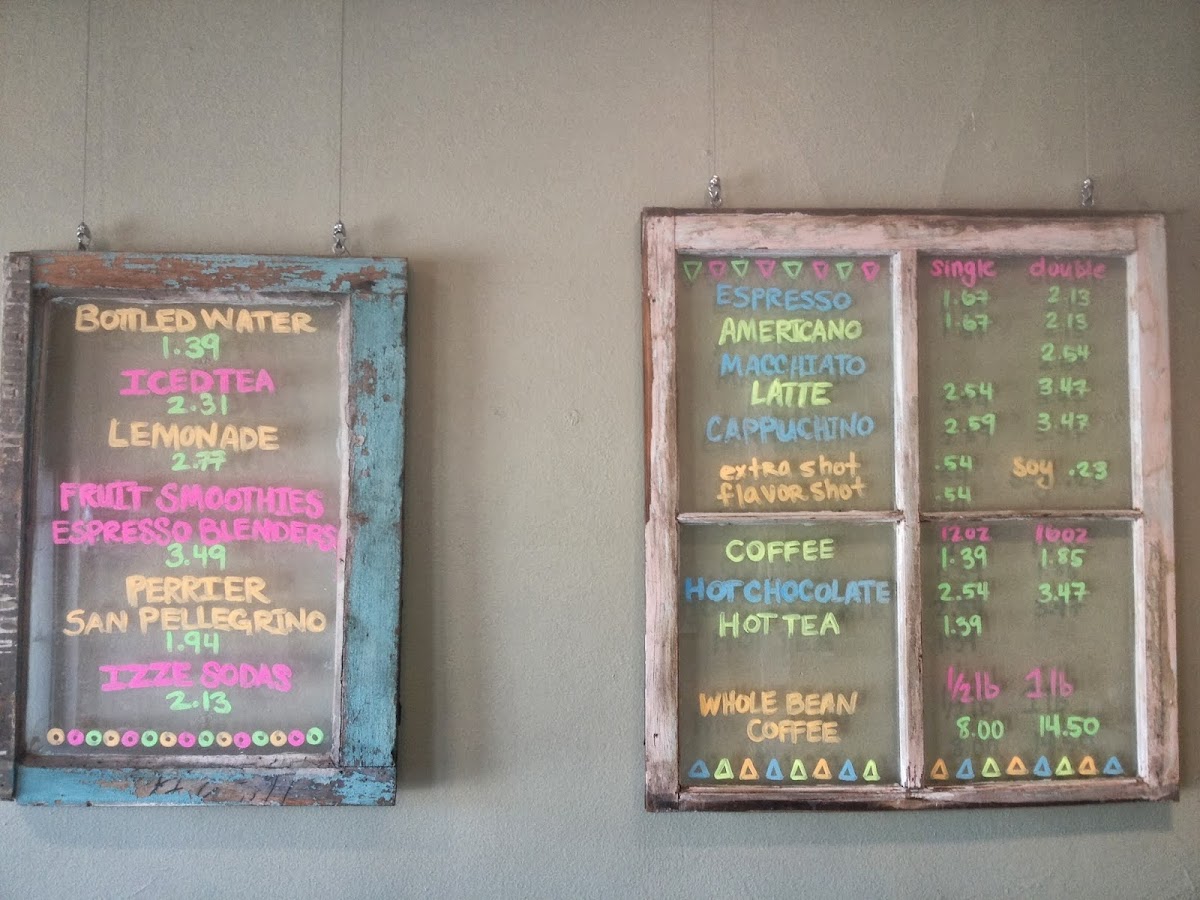 BOTTLED WATER
1.39
ICED TEA
2.31
LEMONADE
2.77
FRUIT SMOOTHIES
ESPRESSO BLENDERS
3.49
PERRIER
SAN PELLEGRINO
1.94
IZZE SODAS
2.13
single double
ESPRESSO 1.67 2.13
AMERICANO 1.67 2.13
MACCHIATO 2.54
LATTE 2.54 3.47
CAPPUCHINO 2.59 3.47
extra shot .54 soy .23
flavor shot .54
12oz 16oz
COFFEE 1.39 1.85
HOT CHOCOLATE 2.54 3.47
HOT TEA 1.39
1/2 lb 1 lb
WHOLE BEAN
COFFEE 8.00 14.50